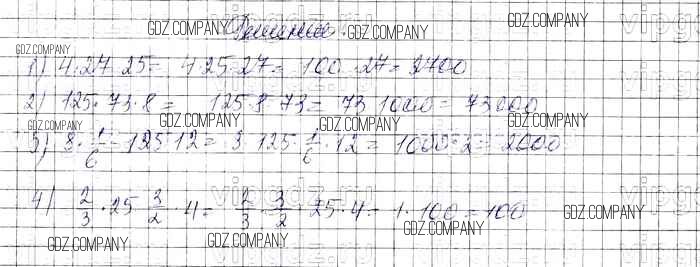 GDZ.COMPANY Решение. GDZ.COMPANY GDZ.COMPANY vipgdz.ru
GDZ.COMPANY
1) 4·27·25= 4·25·27= 100·27= 2700
2) 125·73·8= 125·8·73= 73·1000= 73000
GDZ.COMPANY GDZ.COMPANY GDZ.COMPANY
3) 8·1/6·125·12= 8·125·1/6·12= 1000·2= 2000
vipgdz.ru
4) 2/3·25·3/2·4= 2/3·3/2·25·4= 1·100=100
GDZ.COMPANY GDZ.COMPANY GDZ.COMPANY GDZ.COMPANY